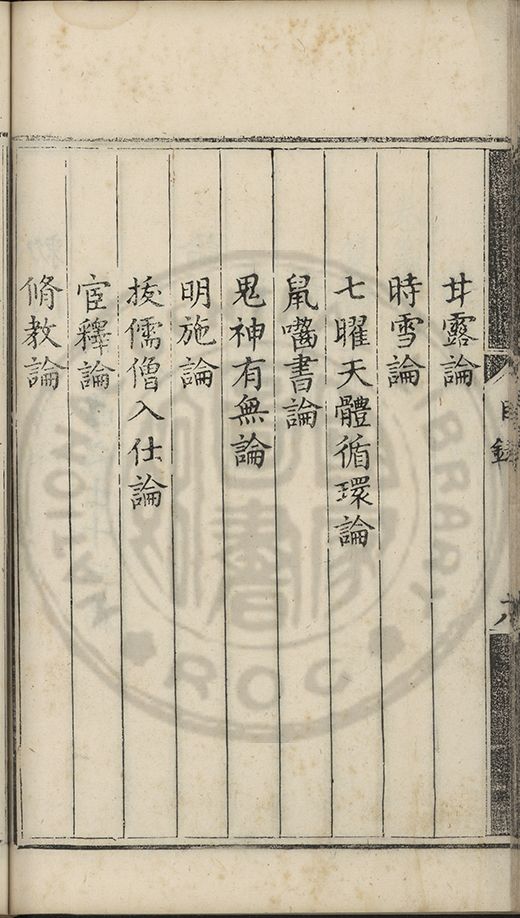 甘露論
時雪論
七曜天體循環論
鼠嚙書論
鬼神有無論
明施論
拔儒僧入仕論
宦釋論
脩教論
目錄
六
ROC